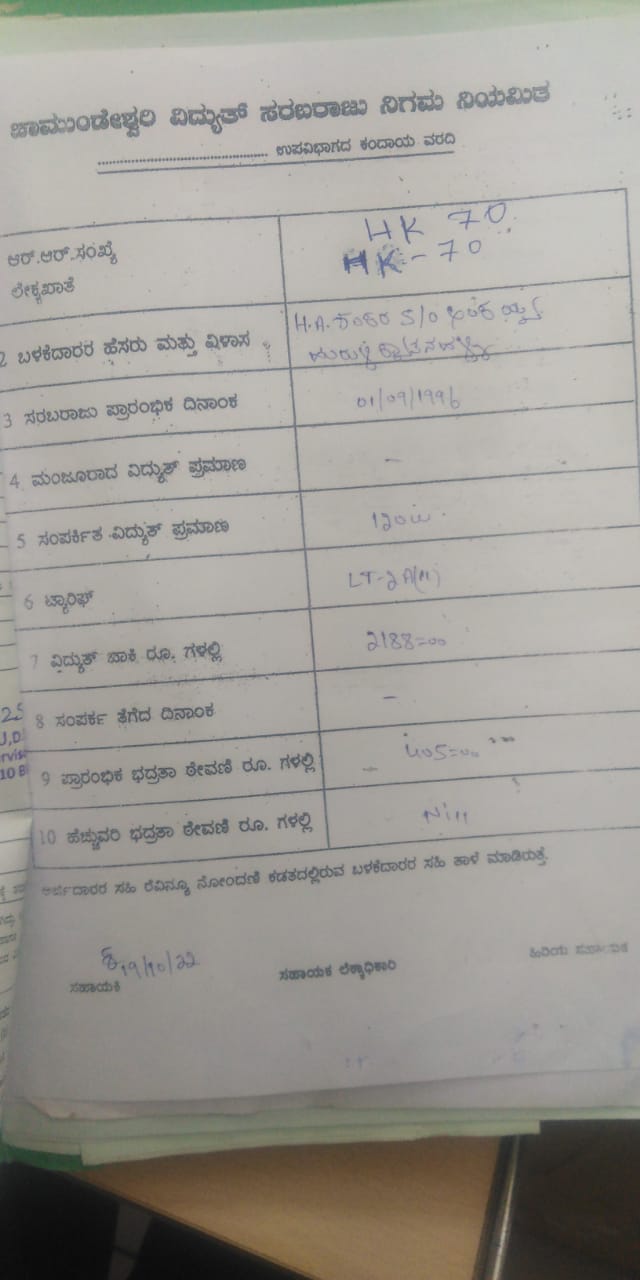 ಚಾಮುಂಡೇಶ್ವರಿ ವಿದ್ಯುತ್ ಸರಬರಾಜು ನಿಗಮ ನಿಯಮಿತ
.................................................. ಉಪವಿಭಾಗದ ಕಂದಾಯ ವರದಿ
ಆರ್.ಆರ್.ಸಂಖ್ಯೆ HK 70
ಲೇಕ್ಯಖಾತೆ HK-70
2 ಬಳಕೆದಾರರ ಹೆಸರು ಮತ್ತು ವಿಳಾಸ H.A. S/o
3 ಸರಬರಾಜು ಪ್ರಾರಂಭಿಕ ದಿನಾಂಕ 01/09/1996
4 ಮಂಜೂರಾದ ವಿದ್ಯುತ್ ಪ್ರಮಾಣ -
5 ಸಂಪರ್ಕಿತ ವಿದ್ಯುತ್ ಪ್ರಮಾಣ 120w
6 ಟ್ಯಾರಿಫ್ LT-2A(ii)
7 ವಿದ್ಯುತ್ ಬಾಕಿ ರೂ. ಗಳಲ್ಲಿ 2188=00
8 ಸಂಪರ್ಕ ತೆಗೆದ ದಿನಾಂಕ -
9 ಪ್ರಾರಂಭಿಕ ಭದ್ರತಾ ಠೇವಣಿ ರೂ. ಗಳಲ್ಲಿ 405=00
10 ಹೆಚ್ಚುವರಿ ಭದ್ರತಾ ಠೇವಣಿ ರೂ. ಗಳಲ್ಲಿ Nill
ಅರ್ಜಿದಾರರ ಸಹಿ ರೆವಿನ್ಯೂ ನೋಂದಣಿ ಕಡತದಲ್ಲಿರುವ ಬಳಕೆದಾರರ ಸಹಿ ತಾಳೆ ಮಾಡಿರುತ್ತೆ.
19/10/22
ಸಹಾಯಕಿ ಸಹಾಯಕ ಲೆಕ್ಕಾಧಿಕಾರಿ ಹಿರಿಯ ಸಹಾಯಕ